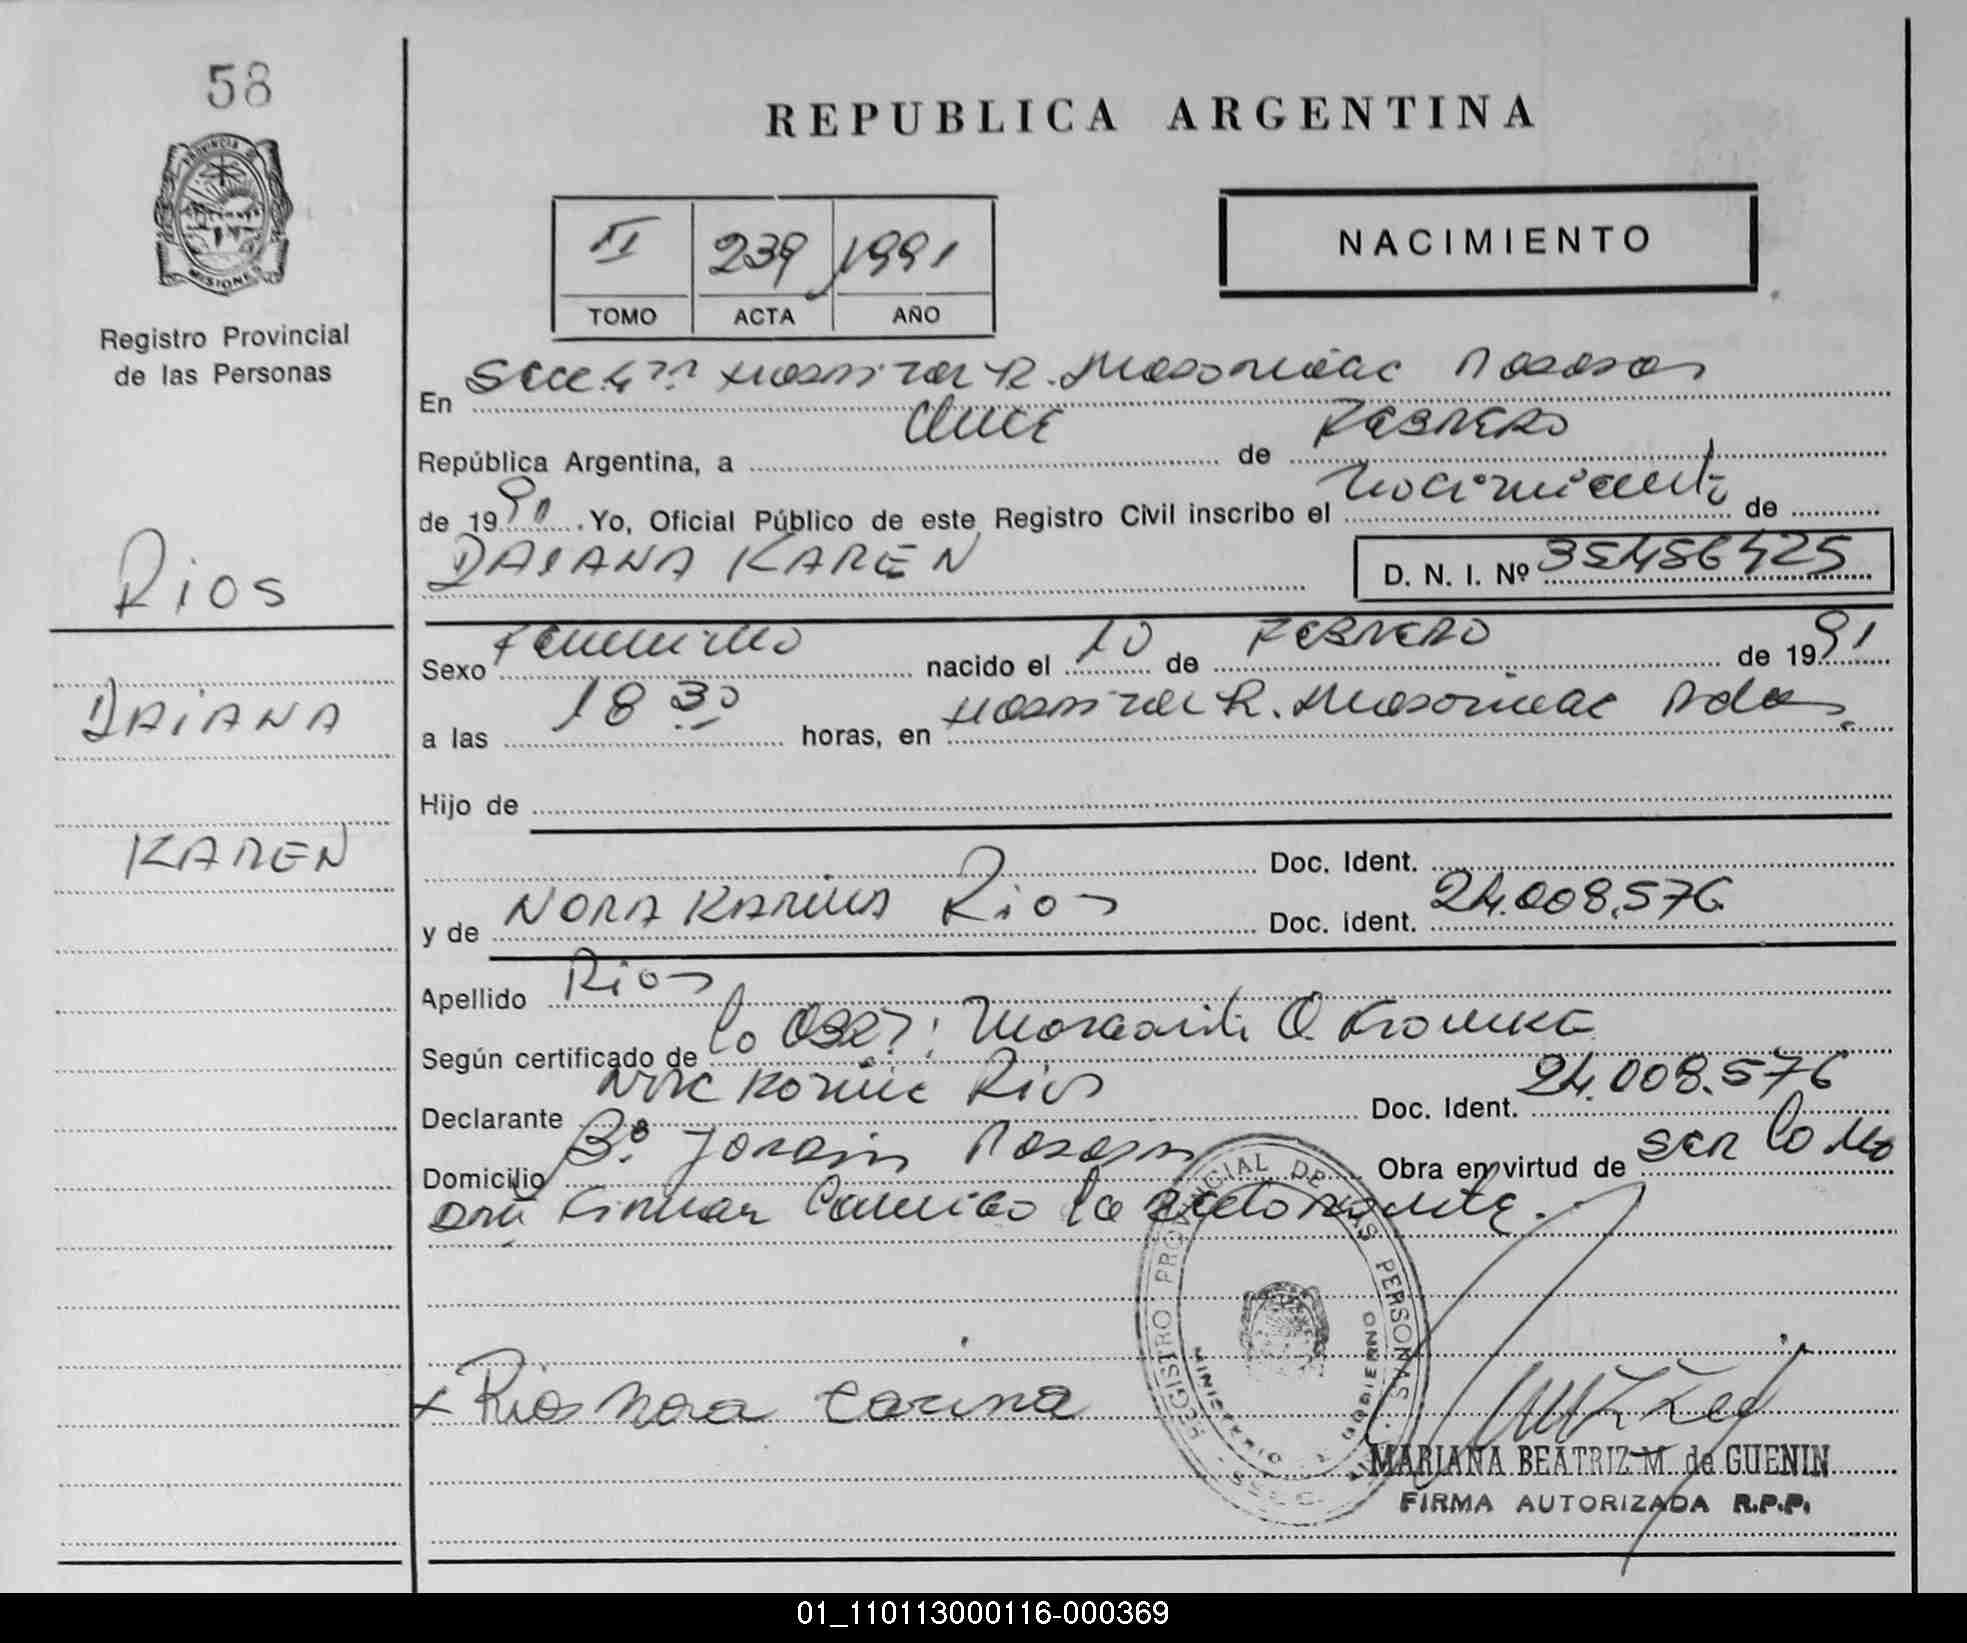 58
PROVINCIA DE
MISIONES
Registro Provincial
de las Personas
REPUBLICA ARGENTINA
NACIMIENTO
II 239 1991
TOMO ACTA AÑO
En Secc. 4ª Hospital R. Madariaga Posadas
República Argentina, a Once de FEBRERO
de 1991. Yo, Oficial Público de este Registro Civil inscribo el Nacimiento de
DAIANA KAREN D. N. I. Nº 35456425
Rios
DAIANA
KAREN
Sexo Femenino nacido el 10 de FEBRERO de 1991
a las 18 30 horas, en Hospital R. Madariaga Pdas.
Hijo de
Doc. Ident.
y de NORA KARINA Rios Doc. Ident. 24.008.576
Apellido Rios
Según certificado de la Obst: Margarita
Declarante Nora Karina Rios Doc. Ident. 24.008.576
Domicilio Bº. Jardin Posadas Obra en virtud de ser la Ma
dre Firman Conmigo la declarante.
x Rios Nora Carina
REGISTRO PROVINCIAL DE LAS PERSONAS
MINISTERIO GOBIERNO
MARIANA BEATRIZ M. de GUENIN
FIRMA AUTORIZADA R.P.P.
01_110113000116-000369